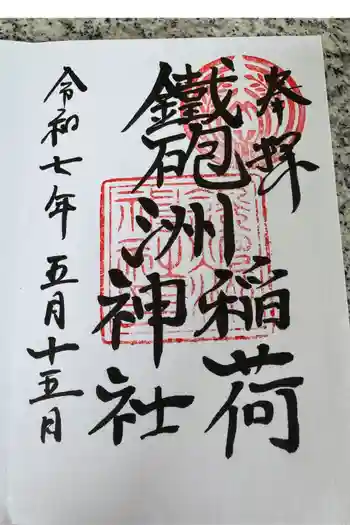 奉拝
鐵砲洲
稲荷
神社
令和七年五月十五日